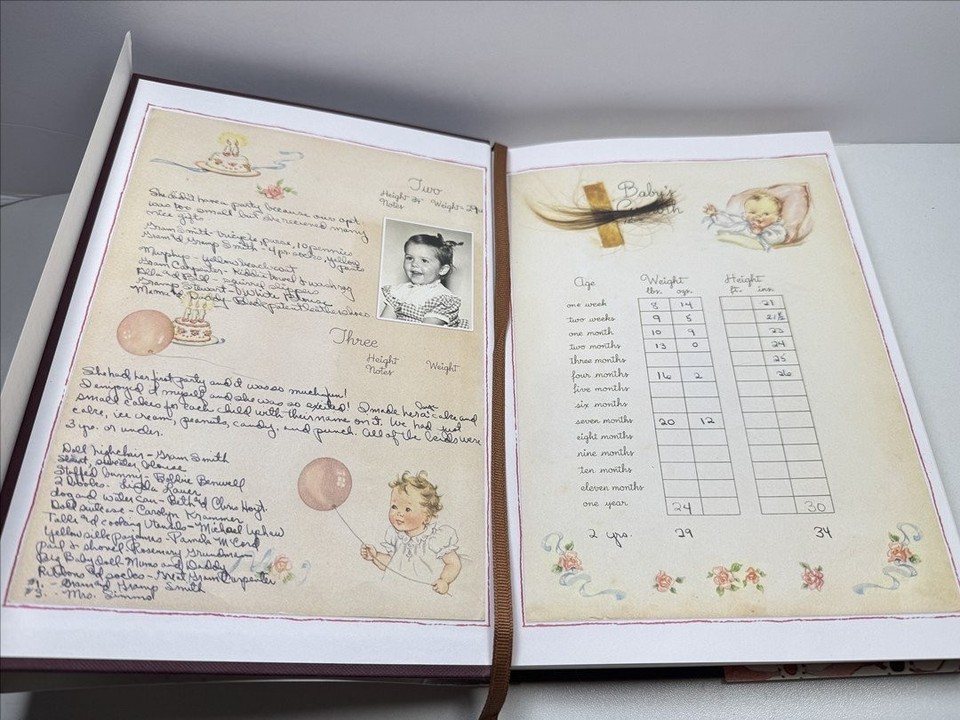 Two
Height 34 Weight 29
Notes
She didn't have a party because our apt.
was too small but she received many
nice gifts.
Gram Smith - tricycle, purse, 10 pennies
Gram & Gramp Smith - 4 prs. socks, yellow
pants
Murphys - yellow
Gram Carpenter - Kiddie towel & wash rag
Bill - squirrel slippers
Gramp Stewart - White
Mema & Daddy Black patent leather shoes
Three
Height Weight
Notes
She had her first party and it was so much fun!
I enjoyed it myself and she was so excited! I made her a cake and
small cakes for each child with their name on it. We had just
cake, ice cream, peanuts, candy, and punch. All of the kids were
3 yrs. or under.
Doll highchair - Gram Smith
Skirt, sweater blouse
Stuffed bunny - Bobbie Benwell
2 books - Lauer
dog and water can - Beth & Chris Hoyt
Doll suitcase - Carolyn Krammer
Table & cooking utensils - Michael
Yellow silk pajamas - Pamela McCord
pail & shovel Rosemary Grundman
Big Baby doll - Mama and Daddy
Ribbons & socks - Great Gram Carpenter
$1. - Gram & Gramp Smith
$3. - Mrs. Simms
Baby's
Growth
Age Weight Height
lbs. ozs. ft. ins.
one week 8 14 21
two weeks 9 5 21½
one month 10 9 23
two months 13 0 24
three months 25
four months 16 2 26
five months
six months
seven months 20 12
eight months
nine months
ten months
eleven months
one year 24 30
2 yrs. 29 34